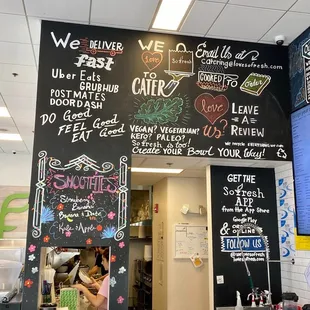 We DELIVER
Fast
Uber Eats
GRUBHUB
POSTMATES
DOORDASH
DO Good
FEEL Good
EAT Good
WE
Love
TO
CATER
So fresh
Email Us at
Catering@lovesofresh.com
COOKED
TO
Order
love
Us?
LEAVE
A
REVIEW
VEGAN? VEGETARIAN?
KETO? PALEO?
So fresh is too!
Create Your Bowl YOUR Way!
SMOOTHIES
Banana &
Kale & Apple
GET THE
So fresh
APP
from the App Store
or
Google Play
& ORDER
ONLINE
FOLLOW US